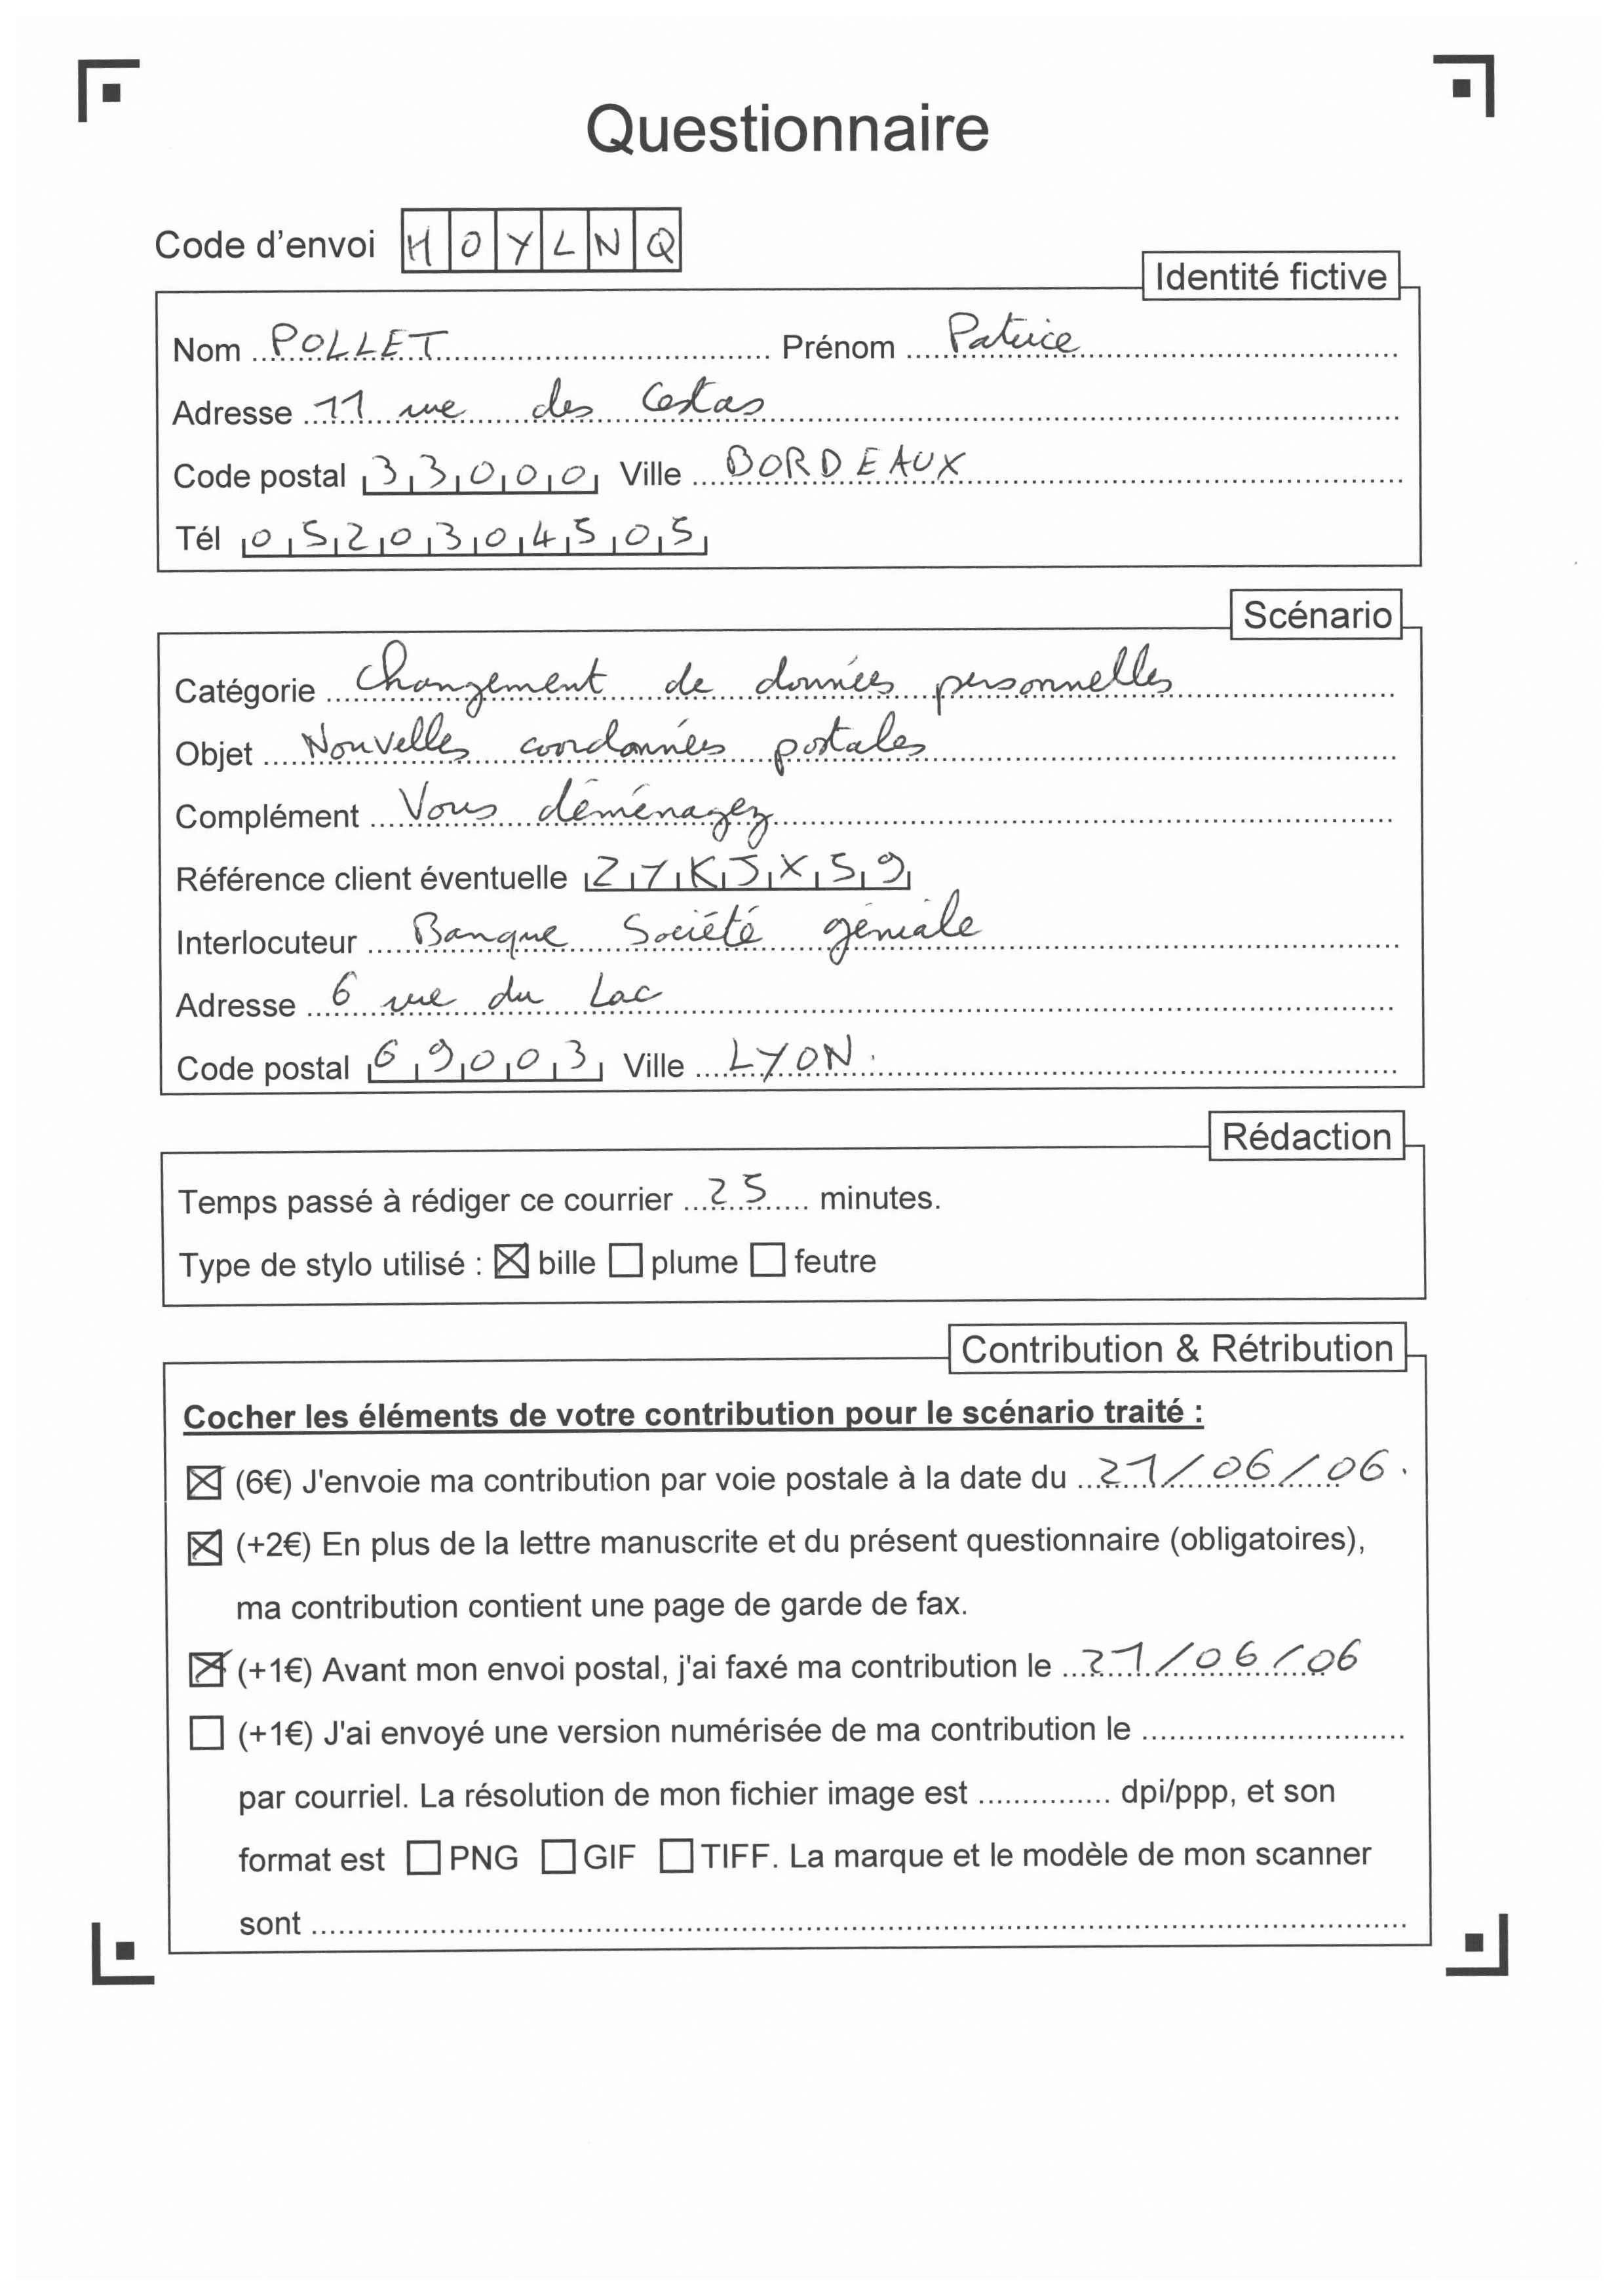 Questionnaire
Code d'envoi HOYLNQ
Identité fictive
Nom POLLET Prénom Patrice
Adresse 11 rue des Cestas
Code postal 33000 Ville BORDEAUX
Tél 0520304505
Scénario
Catégorie Changement de données personnelles
Objet Nouvelles coordonnées postales
Complément Vous déménagez
Référence client éventuelle Z7KJX59
Interlocuteur Banque Société géniale
Adresse 6 rue du Lac
Code postal 69003 Ville LYON.
Rédaction
Temps passé à rédiger ce courrier 25 minutes.
Type de stylo utilisé : ☒ bille ☐ plume ☐ feutre
Contribution & Rétribution
Cocher les éléments de votre contribution pour le scénario traité :
☒ (6€) J'envoie ma contribution par voie postale à la date du 21/06/06.
☒ (+2€) En plus de la lettre manuscrite et du présent questionnaire (obligatoires),
ma contribution contient une page de garde de fax.
☒ (+1€) Avant mon envoi postal, j'ai faxé ma contribution le 21/06/06
☐ (+1€) J'ai envoyé une version numérisée de ma contribution le
par courriel. La résolution de mon fichier image est dpi/ppp, et son
format est ☐ PNG ☐ GIF ☐ TIFF. La marque et le modèle de mon scanner
sont